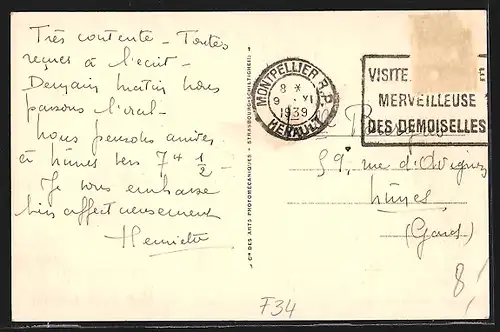 Très contente - Toutes
reçues à l'écrit -
Demain matin nous
passons l'oral -
Nous pensons arriver
à Nîmes vers 7h 1/2 -
Je vous embrasse
bien affectueusement
Henriette
Cie DES ARTS PHOTOMÉCANIQUES - STRASBOURG-SCHILTIGHEIM
MONTPELLIER R.P.
8 *
9 VI
1939
HÉRAULT
VISITE
MERVEILLEUSE
DES DEMOISELLES
59, rue d'Avignon
Nîmes
(Gard)
8/
F34